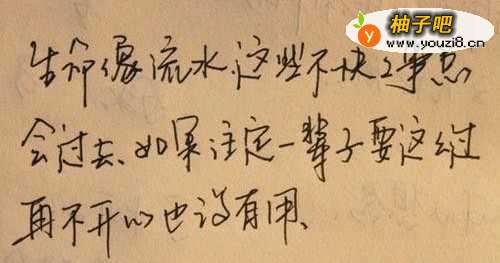 柚子吧
www.youzi8.cn
生命像流水,这些不快之事总
会过去、如果注定一辈子要这么过
再不开心也没有用、